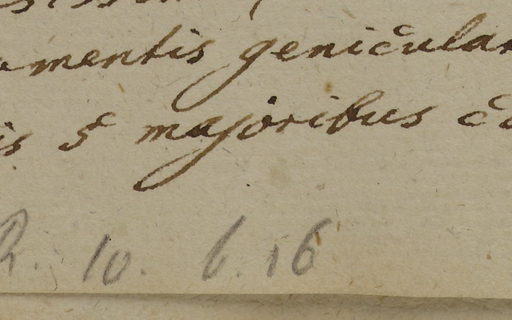 amentis genicular
is 5 majoribus co
R. 10. 6. 16